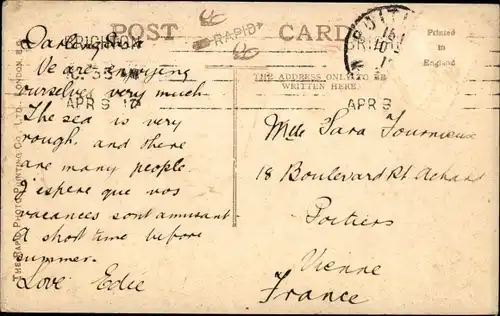 POST CARD
RAPID
Printed
in
England
THE ADDRESS ONLY TO BE
WRITTEN HERE
THE RAPID PHOTO PRINTING CO., LTD., LONDON, E.C.
BRIGHTON
APR 9
APR 9
Darling Sara
We are enjoying
ourselves very much.
The sea is very
rough, and there
are many people.
J'espère que vos
vacances sont amusant
A short time before
summer.
Love Edie
Melle Sara Fournieux
18 Boulevard Pt. Achard
Poitiers
Vienne
France